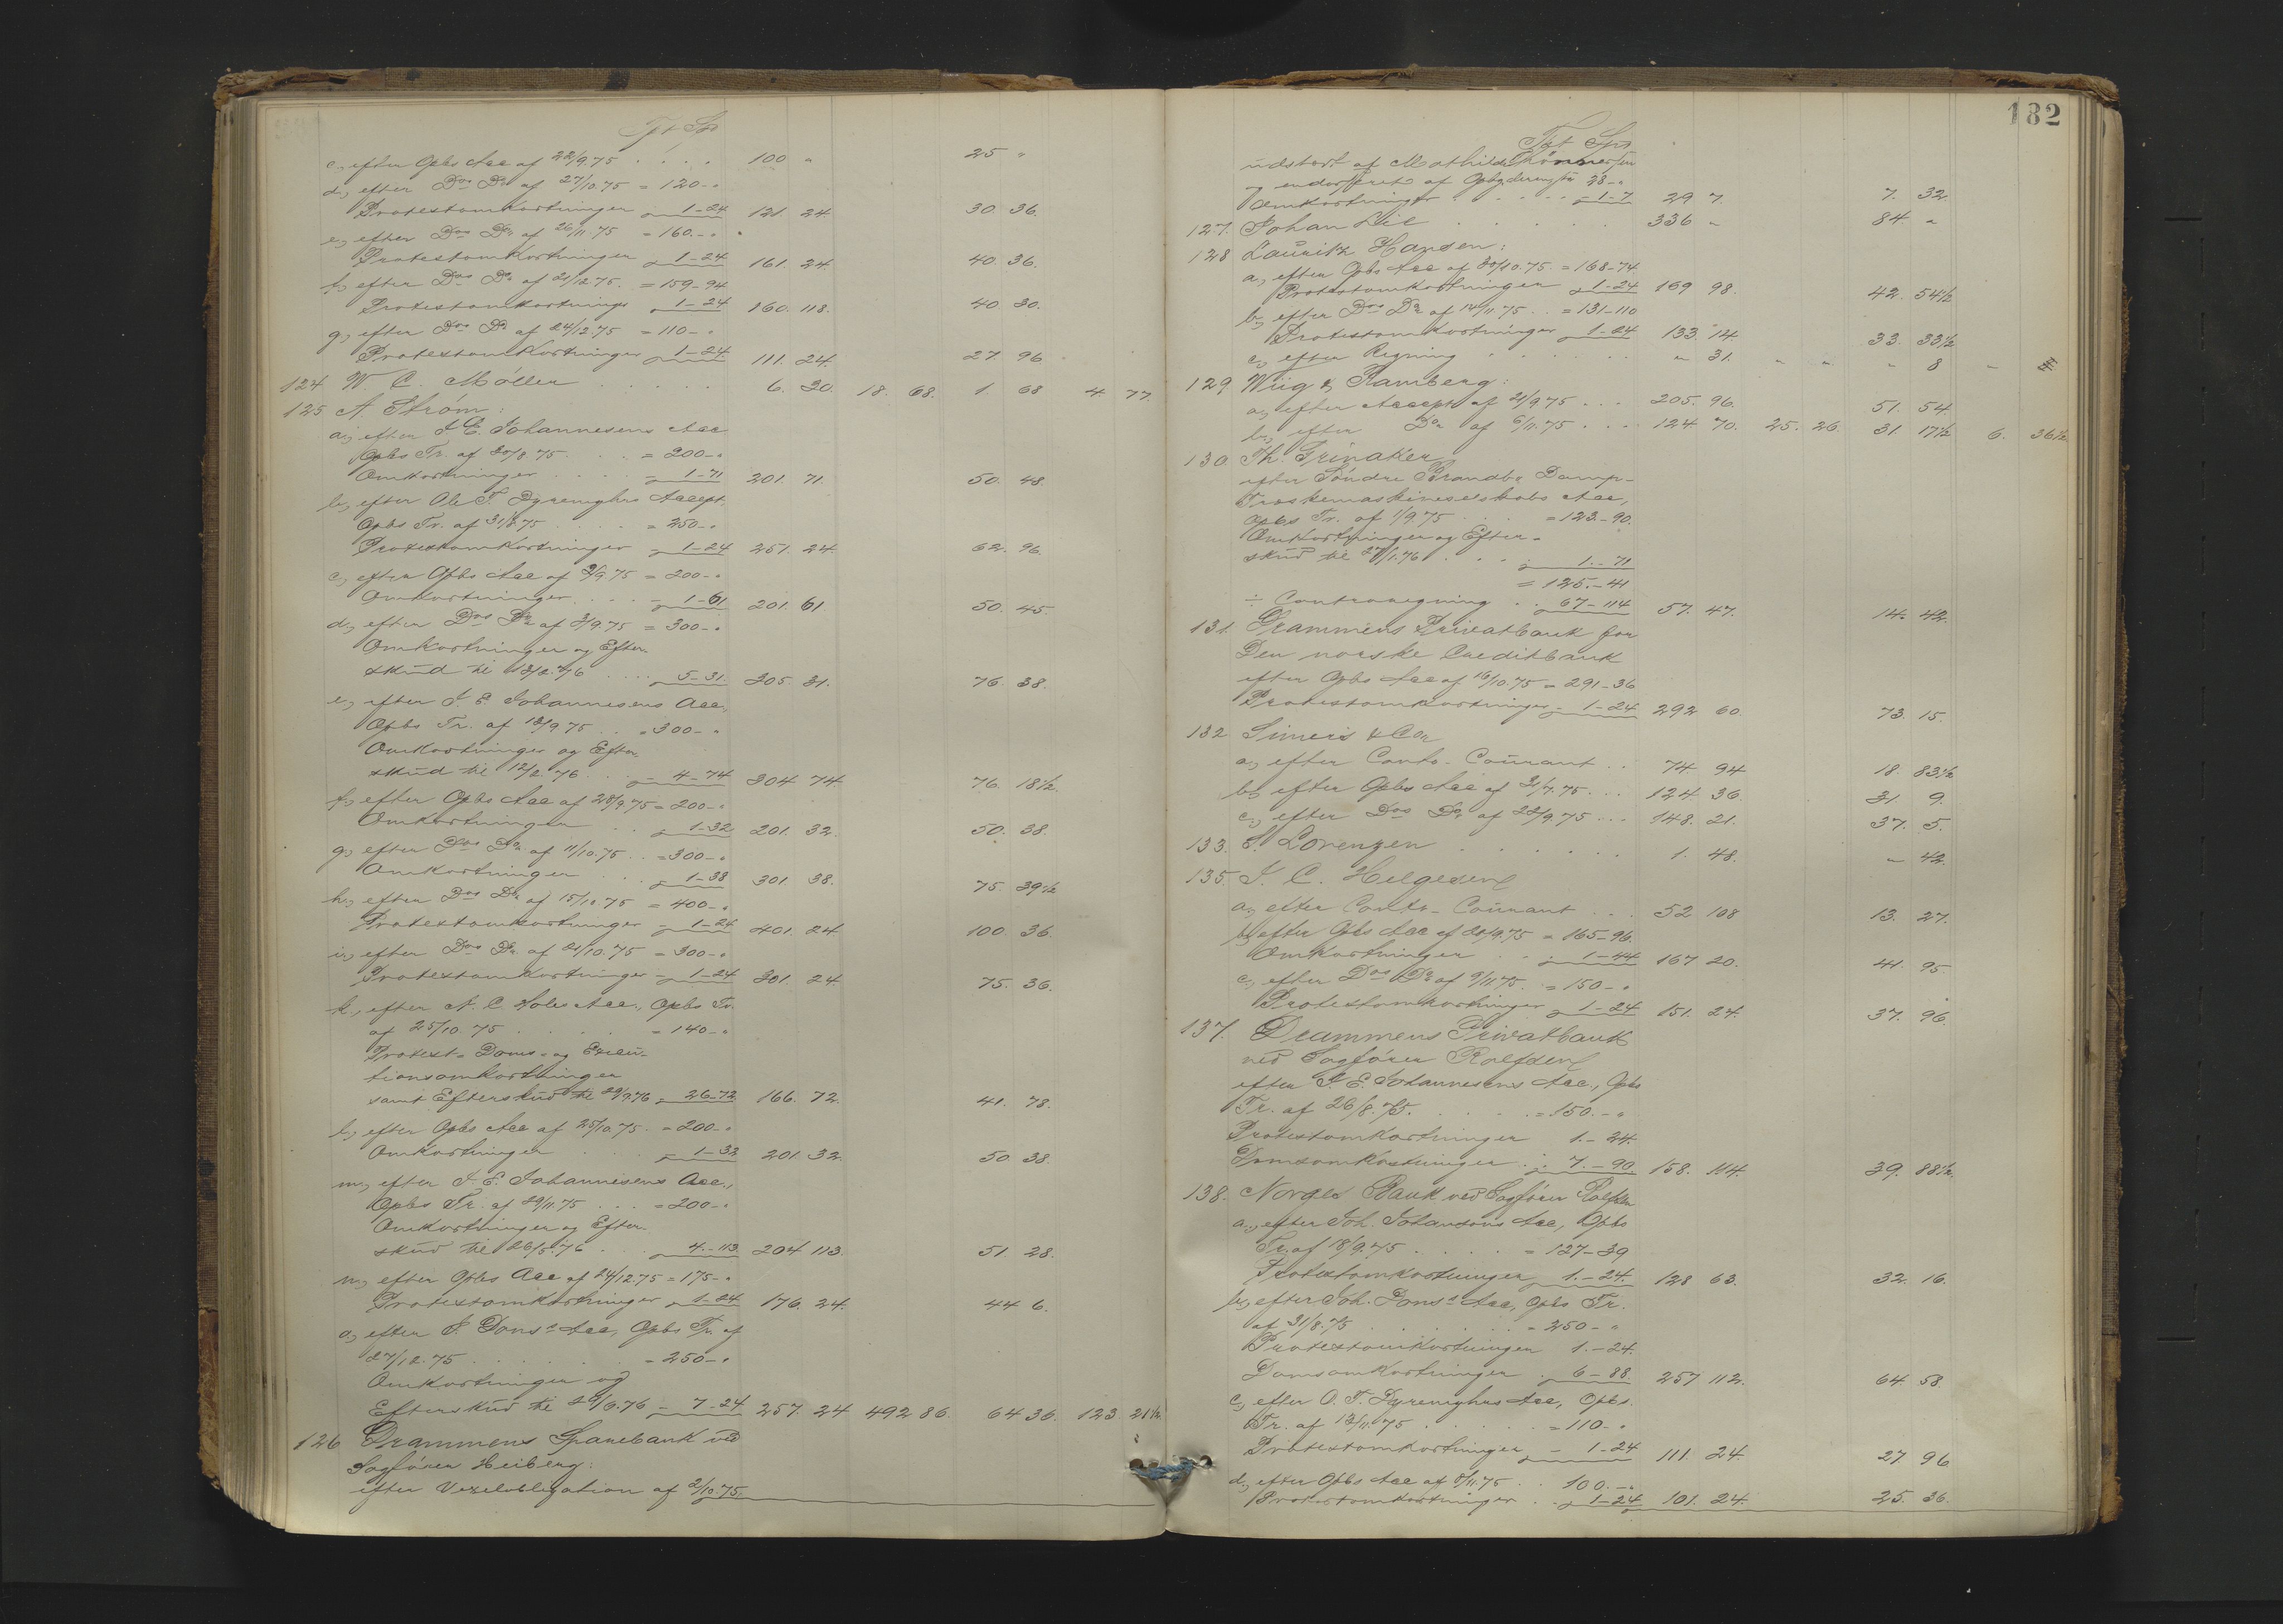 Tpt Sps
c, efter Opbs Acc af 22/9.75 . . . . 100 " 25 "
d, efter Dos Do af 27/10.75 = 120-"
Protestomkostninger - 1-24 121. 24. 30. 36.
e, efter Dos Do af 26/11.75 = 160-"
Protestomkostninger - 1-24 161. 24. 40. 36.
f, efter Dos Do af 21/12.75. = 159-94
Protestomkostninger 1-24 160. 118. 40. 30.
g, efter Dos Do af 24/12.75 = 110-"
Protestomkostninger - 1-24 111. 24. 27. 96
124 W. C. Møller . . . . . 6. 30. 18. 68. 1. 68 4 77.
125 A. Strøm:
a, efter J. E. Johannesens Acc
Opbs Tr. af 20/8 75 . . . = 200-"
Omkostninger . . . . - 1-71 201. 71. 50. 48.
b, efter Ole T. Dyrenghus Accept,
Opbs Tr. af 31/8.75 . . . . = 250-"
Protestomkostninger - 1-24 251. 24. 62. 96.
c, efter Opbs Acc af 2/9 75 = 200-"
Omkostninger . . . . - 1-61 201. 61. 50. 45.
d, efter Dos Do af 3/9.75 = 300-"
Omkostninger og Efter-
skud til 12/2.76 . . . . - 5-31 305. 31. 76. 38.
e, efter J. E. Johannesens Acc,
Opbs Tr. af 12/9 75 . . = 300-"
Omkostninger og Efter-
skud til 12/2.76 . . . - 4-74 304 74 76. 18½.
f, efter Opbs Acc af 28/9.75 = 200-"
Omkostninger . . - 1-32 201. 32. 50. 38.
g, efter Dos Do af 11/10.75 . . = 300-"
Omkostninger . . . - 1-38 301. 38. 75. 39½
h, efter Dos Do af 15/10 75 = 400-"
Protestomkostninger - 1-24 401. 24. 100. 36.
i, efter Dos Do af 21/10.75 = 300-"
Protestomkostninger - 1-24 301. 24 75. 36.
k, efter A. C. Holes Acc., Opbs Tr.
af 25/10 75 . . . . . = 140-"
Protest- Doms- og Execu-
tionsomkostninger
samt Efterskud til 29/9.76 - 26-72 166. 72. 41. 78.
l, efter Opbs Acc af 25/10.75 . = 200-"
Omkostninger . . . - 1-32 201. 32. 50. 38.
m, efter J. E. Johannesens Acc.,
Opbs Tr. af 29/11.75 . . . = 200-"
Omkostninger og Efter-
skud til 26/5.76 . . . - 4.-113. 204 113. 51. 28.
n, efter Opbs Acc af 24/12.75 = 175-"
Protestomkostninger - 1-24 176. 24. 44 6.
o, efter S. Dons's Acc, Opbs Tr. af
27/12.75 . . . . . = 250-"
Omkostninger og
Efterskud til 29/6.76 - 7-24 257. 24 492 86. 64 36. 123. 21½.
126 Drammens Sparebank ved
Sagfører Heiberg:
efter Vexelobligation af 2/10.75.
182
Tpt Sps
udstedt af Mathilde Thønnersen
og endosseret af Opbgderengtr 28-"
Omkostninger . . . . . - 1-7 29 7. 7. 32
127. Johan Lie . . . . . . 336 " 84 "
128 Lauritz Hansen:
a, efter Opbs Acc af 30/10.75. = 168-74
Protestomkostninger - 1-24 169 98. 42. 54½
b, efter Dos Do af 14/11.75 . . = 131-110
Protestomkostninger - 1-24 133. 14. 33. 33½
c, efter Regning . . . . . . " 31. " " " 8 -
129. Wiig & Ramberg:
a, efter Accept af 21/9.75 . . . 205. 96. 51. 54.
b, efter Do af 6/11.75 . . . 124 70. 25. 26. 31. 17½ 6. 36½
130. Th. Grinaker
efter Søndre Brandbu Damp-
Træskemaskineselskabs Acc,
Opbs Tr. af 1/9.75 . . = 123.-90.
Omkostninger og Efter-
skud til 27/1.76 . . . - 1.-71
= 125.-41
÷ Contraregning . . 67-114 57. 47. 14. 42.
131. Drammens Privatbank for
Den norske Creditbank
efter Opbs Acc af 16/10.75 = 291-36
Protestomkostninger - 1-24 292 60. 73. 15.
132 Simers & Co
a, efter Conto-Courant . . 74 94 18. 83½
b, efter Opbs Acc af 21/7.75 . . . 124 36. 31. 9.
c, efter Dos Do af 22/9.75 . . . 148. 21. 37. 5.
133. S. Lorenzen . . . . . . 1. 48. - 42.
135. J. C. Helgesen
a, efter Conto-Courant . . . 52 108 13. 27.
b, efter Opbs Acc af 20/9.75 = 165-96.
Omkostninger . . - 1-44 167 20. 41. 95.
c, efter Dos Do af 9/11.75. = 150-"
Protestomkostninger - 1-24 151. 24. 37. 96.
137. Drammens Privatbank
ved Sagfører Rolfsen
efter J. E. Johannesens Acc., Opbs
Tr. af 26/8.75. . . . . = 150.-"
Protestomkostninger 1.-24.
Domsomkostninger . - 7.-90. 158. 114. 39. 88½.
138. Norges Bank ved Sagfører Rolfsen
a, efter Joh. Johansons Acc, Opbs
Tr. af 18/9.75 . . . . = 127-39
Protestomkostninger 1.-24. 128 63. 32. 16.
b, efter Joh. Dons's Acc, Opbs Tr.
af 31/8.75 . . . . . . = 250-"
Protestomkostninger 1.-24.
Domsomkostninger - 6-88. 257 112. 64. 58.
c, efter O. T. Dyrenghus Acc, Opbs.
Tr. af 13/11.75 . . . . = 110-"
Protestomkostninger - 1-24 111. 24. 27 96.
d, efter Opbs Acc af 5/11.75 . . 100.-"
Protestomkostninger . . - 1-24 101. 24. 25. 36.